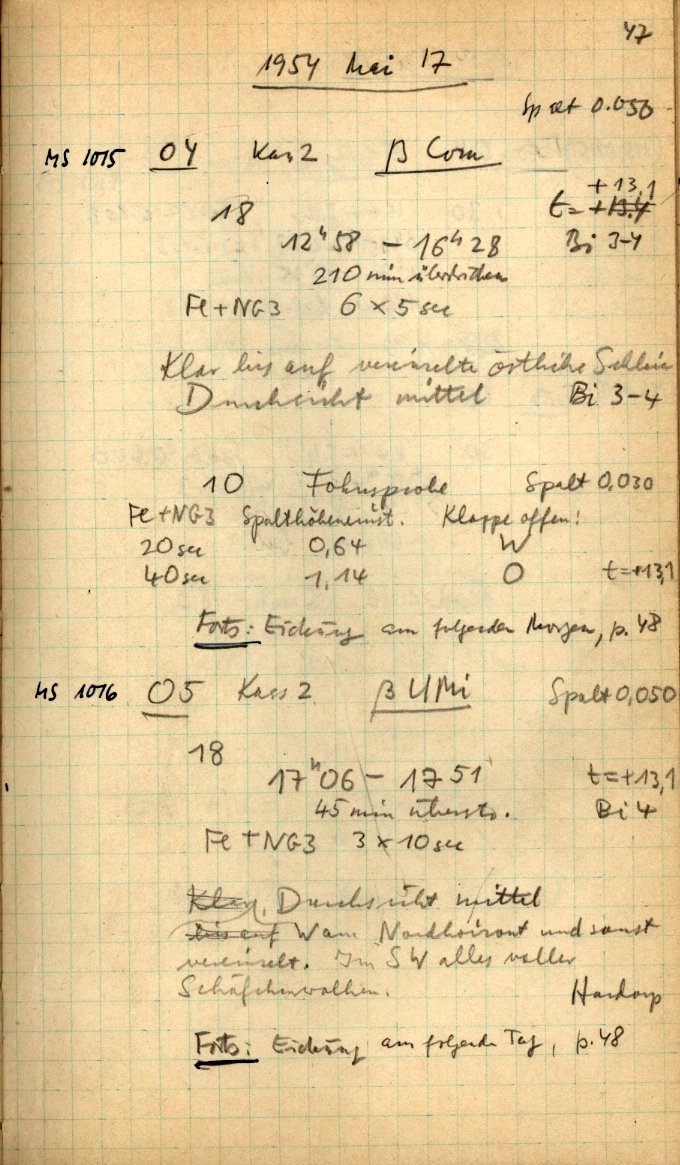 47
1954 Mai 17
Spalt 0.050
MS 1015 04 Kas 2 β Com
+13,1
18 t= +13.4
12h 58 - 16h 28 Bi 3-4
210 min überstrichen
Fe+NG3 6 × 5 sec
Klar bis auf vereinzelte östliche Schleier
Durchsicht mittel Bi 3-4
10 Fokusprobe Spalt 0,030
Fe+NG3 Spalthöheneinst. Klappe offen!
20 sec 0,64 W
40 sec 1,14 O t=+13,1
Foto: Eichung am folgenden Morgen, p. 48
MS 1016 05 Kass 2 β UMi Spalt 0,050
18
17h 06 - 17 51 t=+13,1
45 min überstr. Bi 4
Fe+NG3 3 × 10 sec
Klar, Durchsicht mittel
bis auf W am Nordhorizont und sonst
vereinzelt. Im SW alles voller
Schäfchenwolken. Hardorp
Foto: Eichung am folgenden Tag, p. 48